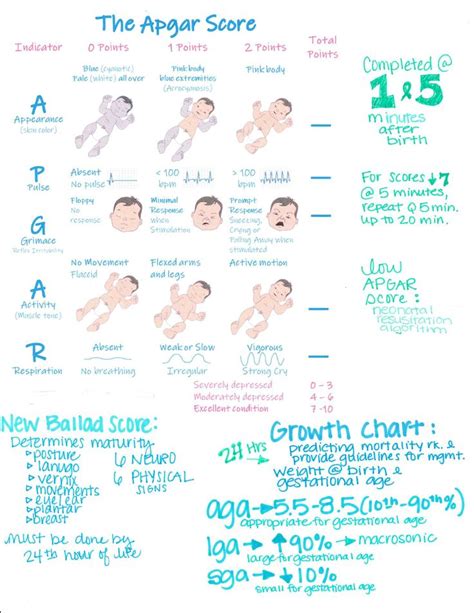 The Apgar Score
Indicator 0 Points 1 Points 2 Points Total Points
Blue (cyanotic)
Pale (white) all over
Pink body
blue extremities
(Acrocyanosis)
Pink body
A
Appearance
(skin color)
P
Pulse
Absent
No pulse
< 100
bpm
> 100
bpm
G
Grimace
Reflex Irritability
Floppy
No
response
Minimal
Response
when
Stimulation
Prompt
Response
Sneezing,
Crying or
Pulling Away when
Stimulated
A
Activity
(Muscle tone)
No Movement
Flaccid
Flexed arms
and legs
Active motion
R
Respiration
Absent
No breathing
Weak or Slow
Irregular
Vigorous
Strong Cry
Severely depressed 0 - 3
Moderately depressed 4 - 6
Excellent condition 7 - 10
Completed @
1 & 5
minutes
after
birth
For scores ↓7
@ 5 minutes,
repeat Q 5 min.
up to 20 min.
low
APGAR
score:
neonatal
algorithm
New Ballad Score:
Determines maturity
▸posture
▸lanugo
▸vernix
▸movements
▸eye/ear
▸plantar
▸breast
6 NEURO
6 PHYSICAL
SIGNS
must be done by
24th hour of life
Growth Chart:
24 Hrs
predicting mortality rk. &
provide guidelines for mgmt.
weight @ birth &
gestational age
aga→5.5-8.5(10th-90th%)
appropriate for gestational age
lga→↑90%→macrosonic
large for gestational age
sga→↓10%
small for gestational age